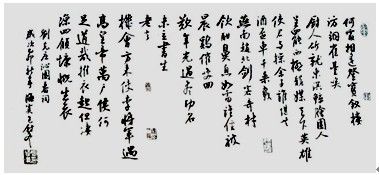 何處相逢登寶釵樓
訪銅雀臺喚
廚人斫就東溟鯨膾圉人
呈罷西極龍媒天下英雄
使君與操餘子誰堪共
酒杯車千乘載
燕南趙北劍客奇才
飲酣鼻息如雷誰信被
晨鷄喚回
歎年光過盡功名
未立書生
老去
機會方來使李將軍遇
高皇帝萬戶侯何
足道哉推衣起但淒
涼四顧慷慨生哀
劉克莊沁園春詞